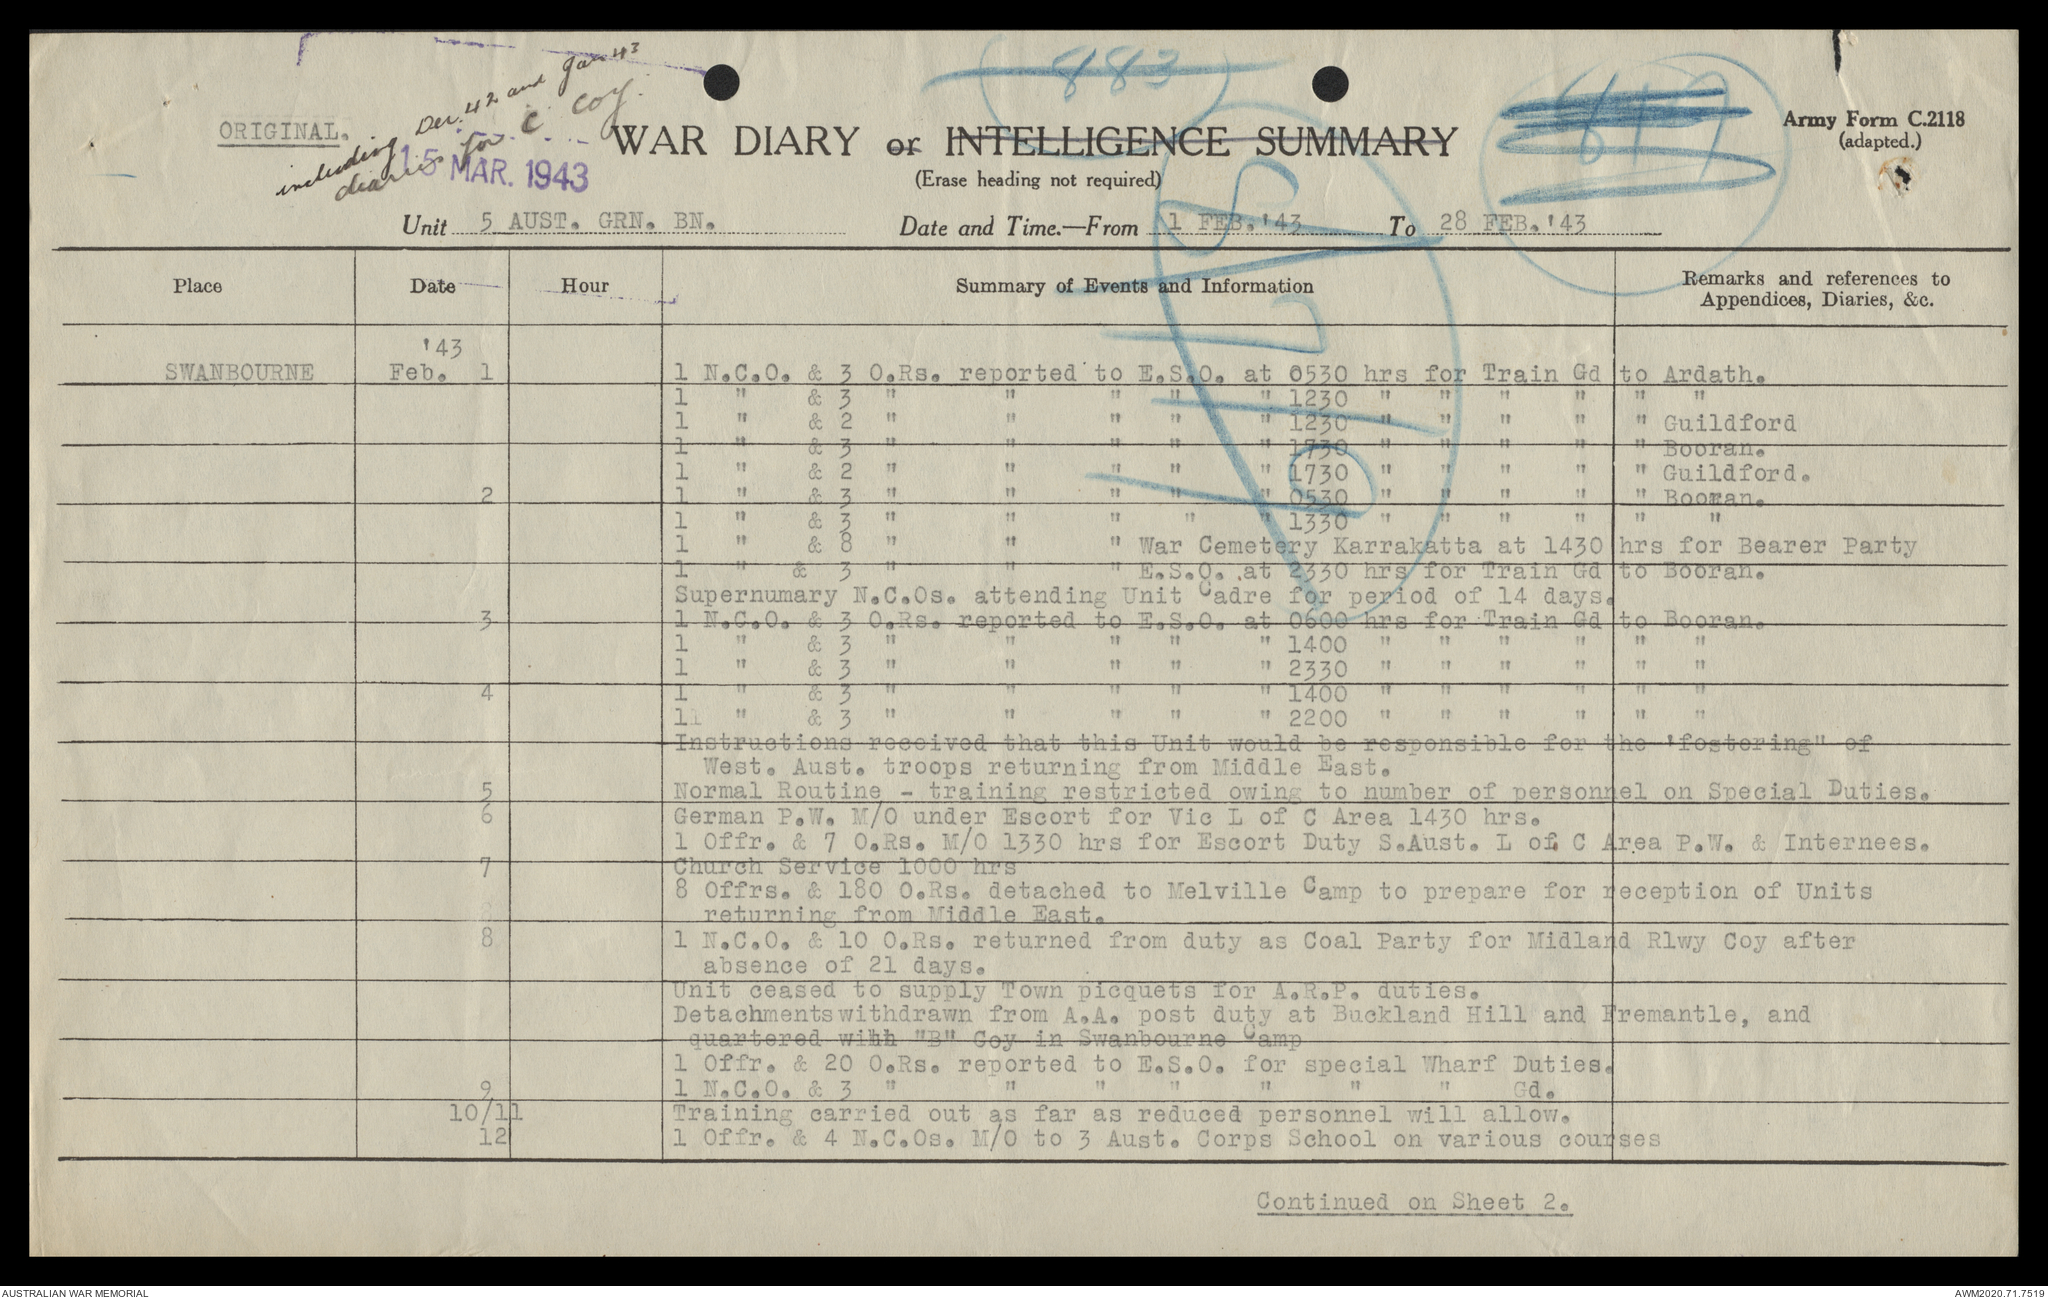 including Dec. 42 and Jan 43
diaries for C Coy.
883
617
ORIGINAL.
15 MAR. 1943
WAR DIARY or INTELLIGENCE SUMMARY
(Erase heading not required)
Army Form C.2118
(adapted.)
Unit 5 AUST. GRN. BN. Date and Time.—From 1 FEB.'43 To 28 FEB.'43
Place Date Hour Summary of Events and Information Remarks and references to
Appendices, Diaries, &c.
'43
SWANBOURNE Feb. 1 1 N.C.O. & 3 O.Rs. reported to E.S.O. at 0530 hrs for Train Gd to Ardath.
1 " & 3 " " " " " 1230 " " " " " "
1 " & 2 " " " " " 1230 " " " " " Guildford
1 " & 3 " " " " " 1730 " " " " " Booran.
1 " & 2 " " " " " 1730 " " " " " Guildford.
2 1 " & 3 " " " " " 0530 " " " " " Booran.
1 " & 3 " " " " " 1330 " " " " " "
1 " & 8 " " " War Cemetery Karrakatta at 1430 hrs for Bearer Party
1 " & 3 " " " E.S.O. at 2330 hrs for Train Gd to Booran.
Supernumary N.C.Os. attending Unit Cadre for period of 14 days.
3 1 N.C.O. & 3 O.Rs. reported to E.S.O. at 0600 hrs for Train Gd to Booran.
1 " & 3 " " " " " 1400 " " " " " "
1 " & 3 " " " " " 2330 " " " " " "
4 1 " & 3 " " " " " 1400 " " " " " "
11 " & 3 " " " " " 2200 " " " " " "
Instructions received that this Unit would be responsible for the 'fostering" of
West. Aust. troops returning from Middle East.
5 Normal Routine - training restricted owing to number of personnel on Special Duties.
6 German P.W. M/O under Escort for Vic L of C Area 1430 hrs.
1 Offr. & 7 O.Rs. M/O 1330 hrs for Escort Duty S.Aust. L of C Area P.W. & Internees.
7 Church Service 1000 hrs
8 Offrs. & 180 O.Rs. detached to Melville Camp to prepare for reception of Units
returning from Middle East.
8 1 N.C.O. & 10 O.Rs. returned from duty as Coal Party for Midland Rlwy Coy after
absence of 21 days.
Unit ceased to supply Town picquets for A.R.P. duties.
Detachments withdrawn from A.A. post duty at Buckland Hill and Fremantle, and
quartered with "B" Coy in Swanbourne Camp
1 Offr. & 20 O.Rs. reported to E.S.O. for special Wharf Duties.
9 1 N.C.O. & 3 " " " " " " " Gd.
10/11 Training carried out as far as reduced personnel will allow.
12 1 Offr. & 4 N.C.Os. M/O to 3 Aust. Corps School on various courses
Continued on Sheet 2.
AUSTRALIAN WAR MEMORIAL
AWM2020.71.7519